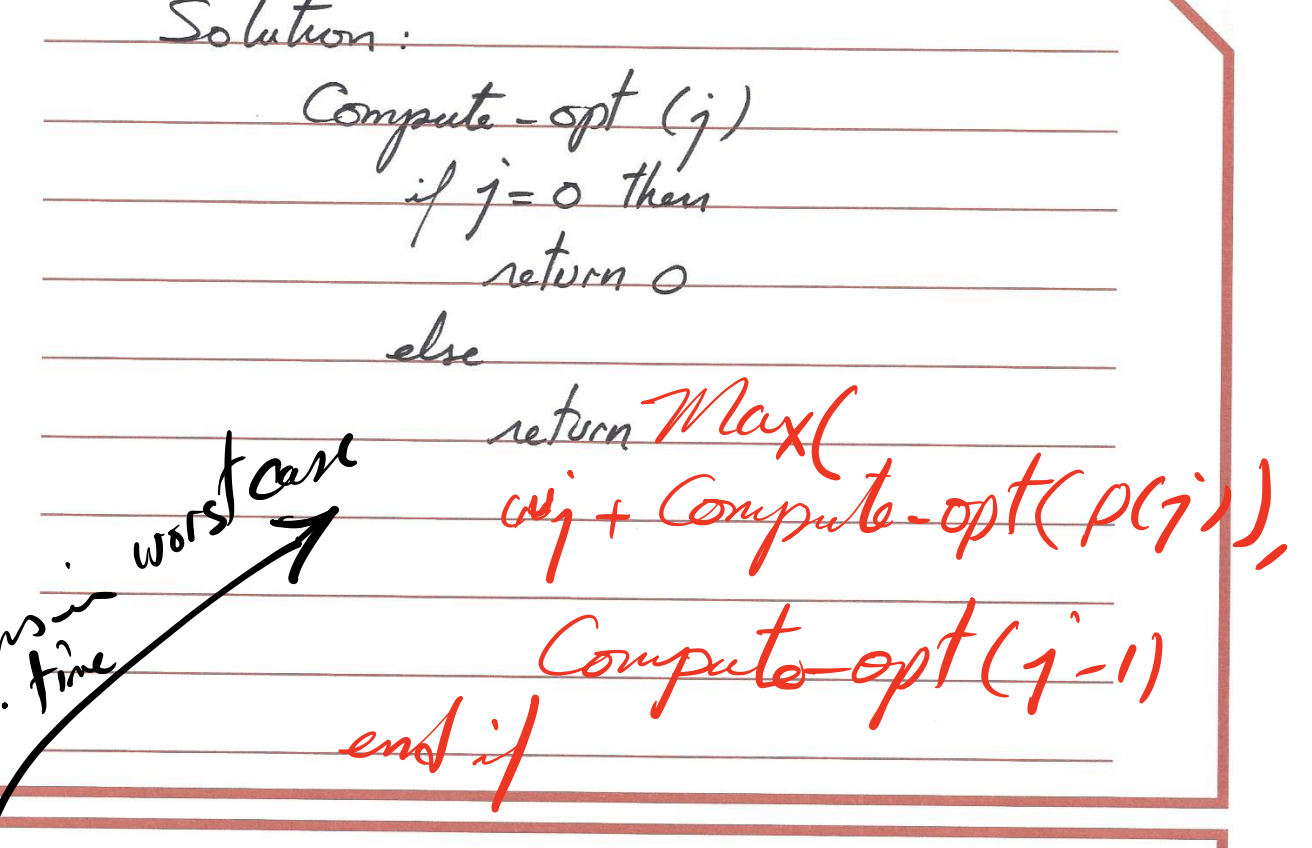 Solution:
Compute-opt (j)
if j=0 then
return 0
else
return Max(
wj + Compute-opt(P(j)),
Compute-opt(j-1)
end if
worst case
time